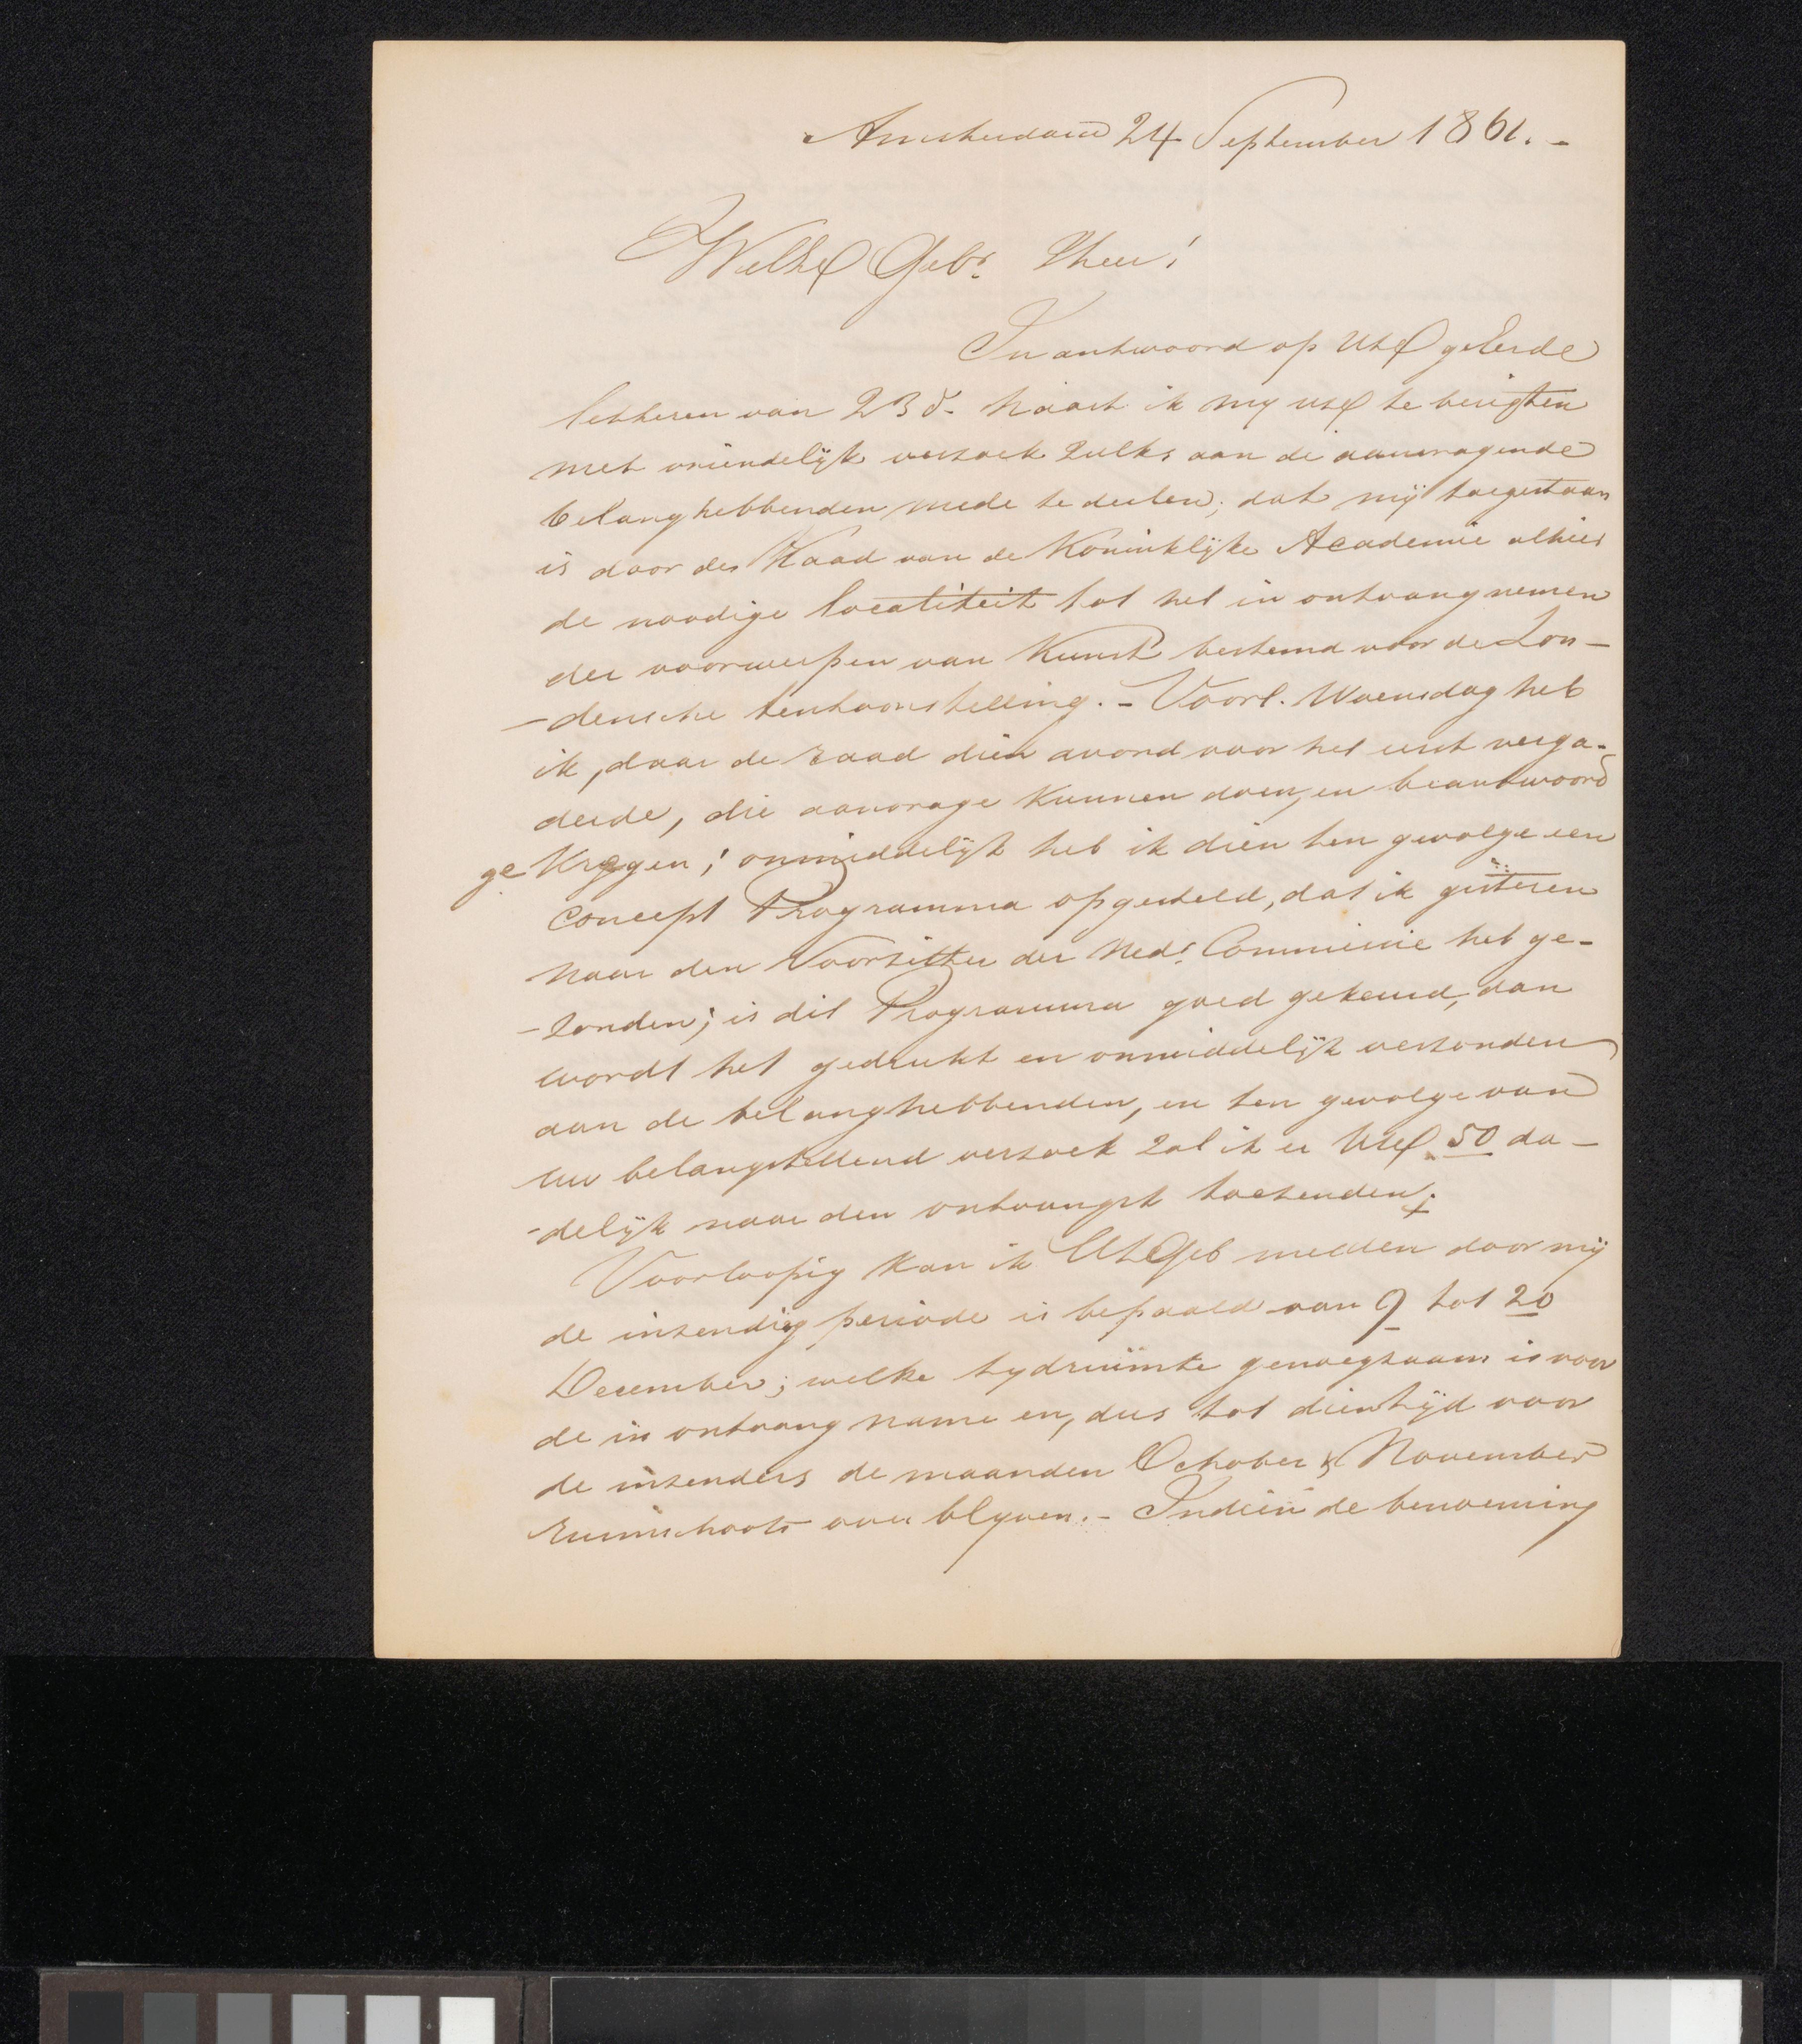 Amsterdam 24 September 1861. -
WelEd Gebr. Heer!
In antwoord op UEd geëerde
letteren van 23 dr. haast ik my UEd te berigten
met vriendelijk verzoek zulks aan de aanvragende
belanghebbenden mede te deelen; dat mij toegestaan
is door den Raad van de Koninklijke Academie alhier
de noodige localiteit tot het in ontvang nemen
der voorwerpen van Kunst bestemd voor de Lon-
-densche tentoonstelling. - Voorl. Woensdag heb
ik, daar de raad dien avond voor het eerst verga-
derde, die aanvrage kunnen doen, en beantwoord
gekregen; onmiddelijk heb ik dien ten gevolge een
concept Programma opgesteld, dat ik gisteren
naar den Voorzitter der Ned. Commissie heb ge-
-zonden; is dit Programma goed gekeurd, dan
wordt het gedrukt en onmiddelijk verzonden
aan de belanghebbenden, en ten gevolge van
uw belangstellend verzoek zal ik er UEd 50 da-
-delijk naar den ontvangst toezenden.
Voorloopig kan ik UEdGeb melden door mij
de inzendig periode is bepaald van 9 tot 20
December; welke tydruimte genoegzaam is voor
de in ontvang name en, dus tot dien tijd voor
de inzenders de maanden October & November
ruimschoots over blyven. - Indien de benoeming